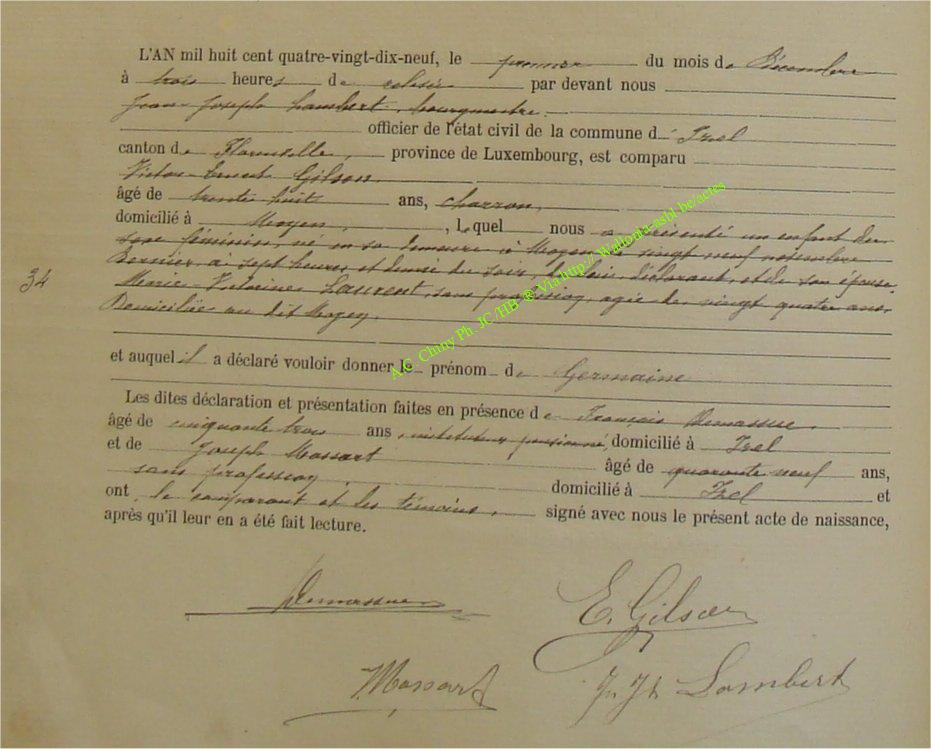 L'AN mil huit cent quatre-vingt-dix-neuf, le premier du mois de Décembre
à trois heures de relevée par devant nous
Jean-Joseph Lambert, bourgmestre
officier de l'état civil de la commune d' Izel
canton de Florenville, province de Luxembourg, est comparu
Victor Ernest Gilson
âgé de trente huit ans, charron,
domicilié à Moyen, , Lequel nous a présenté un enfant du
sexe féminin, né en sa demeure à Moyen le vingt neuf novembre
Dernier, à sept heures et demie du soir, de lui, déclarant, et de son épouse
34
Marie- Laurent, sans profession, agée de vingt quatre ans,
Domiciliée au dit Moyen,
et auquel il a déclaré vouloir donner le prénom de Germaine
Les dites déclaration et présentation faites en présence de François Demasure,
âgé de cinquante trois ans, instituteur pensionné, domicilié à Izel
et de Joseph Massart âgé de quarante neuf ans,
sans profession domicilié à Izel et
ont, le comparant et les témoins, signé avec nous le présent acte de naissance,
après qu'il leur en a été fait lecture.
A.G. Chiny Ph. JC./HB. @ Via http:// Wallonia-asbl.be/actes
E. Gilson
Massart
J. Jh Lambert